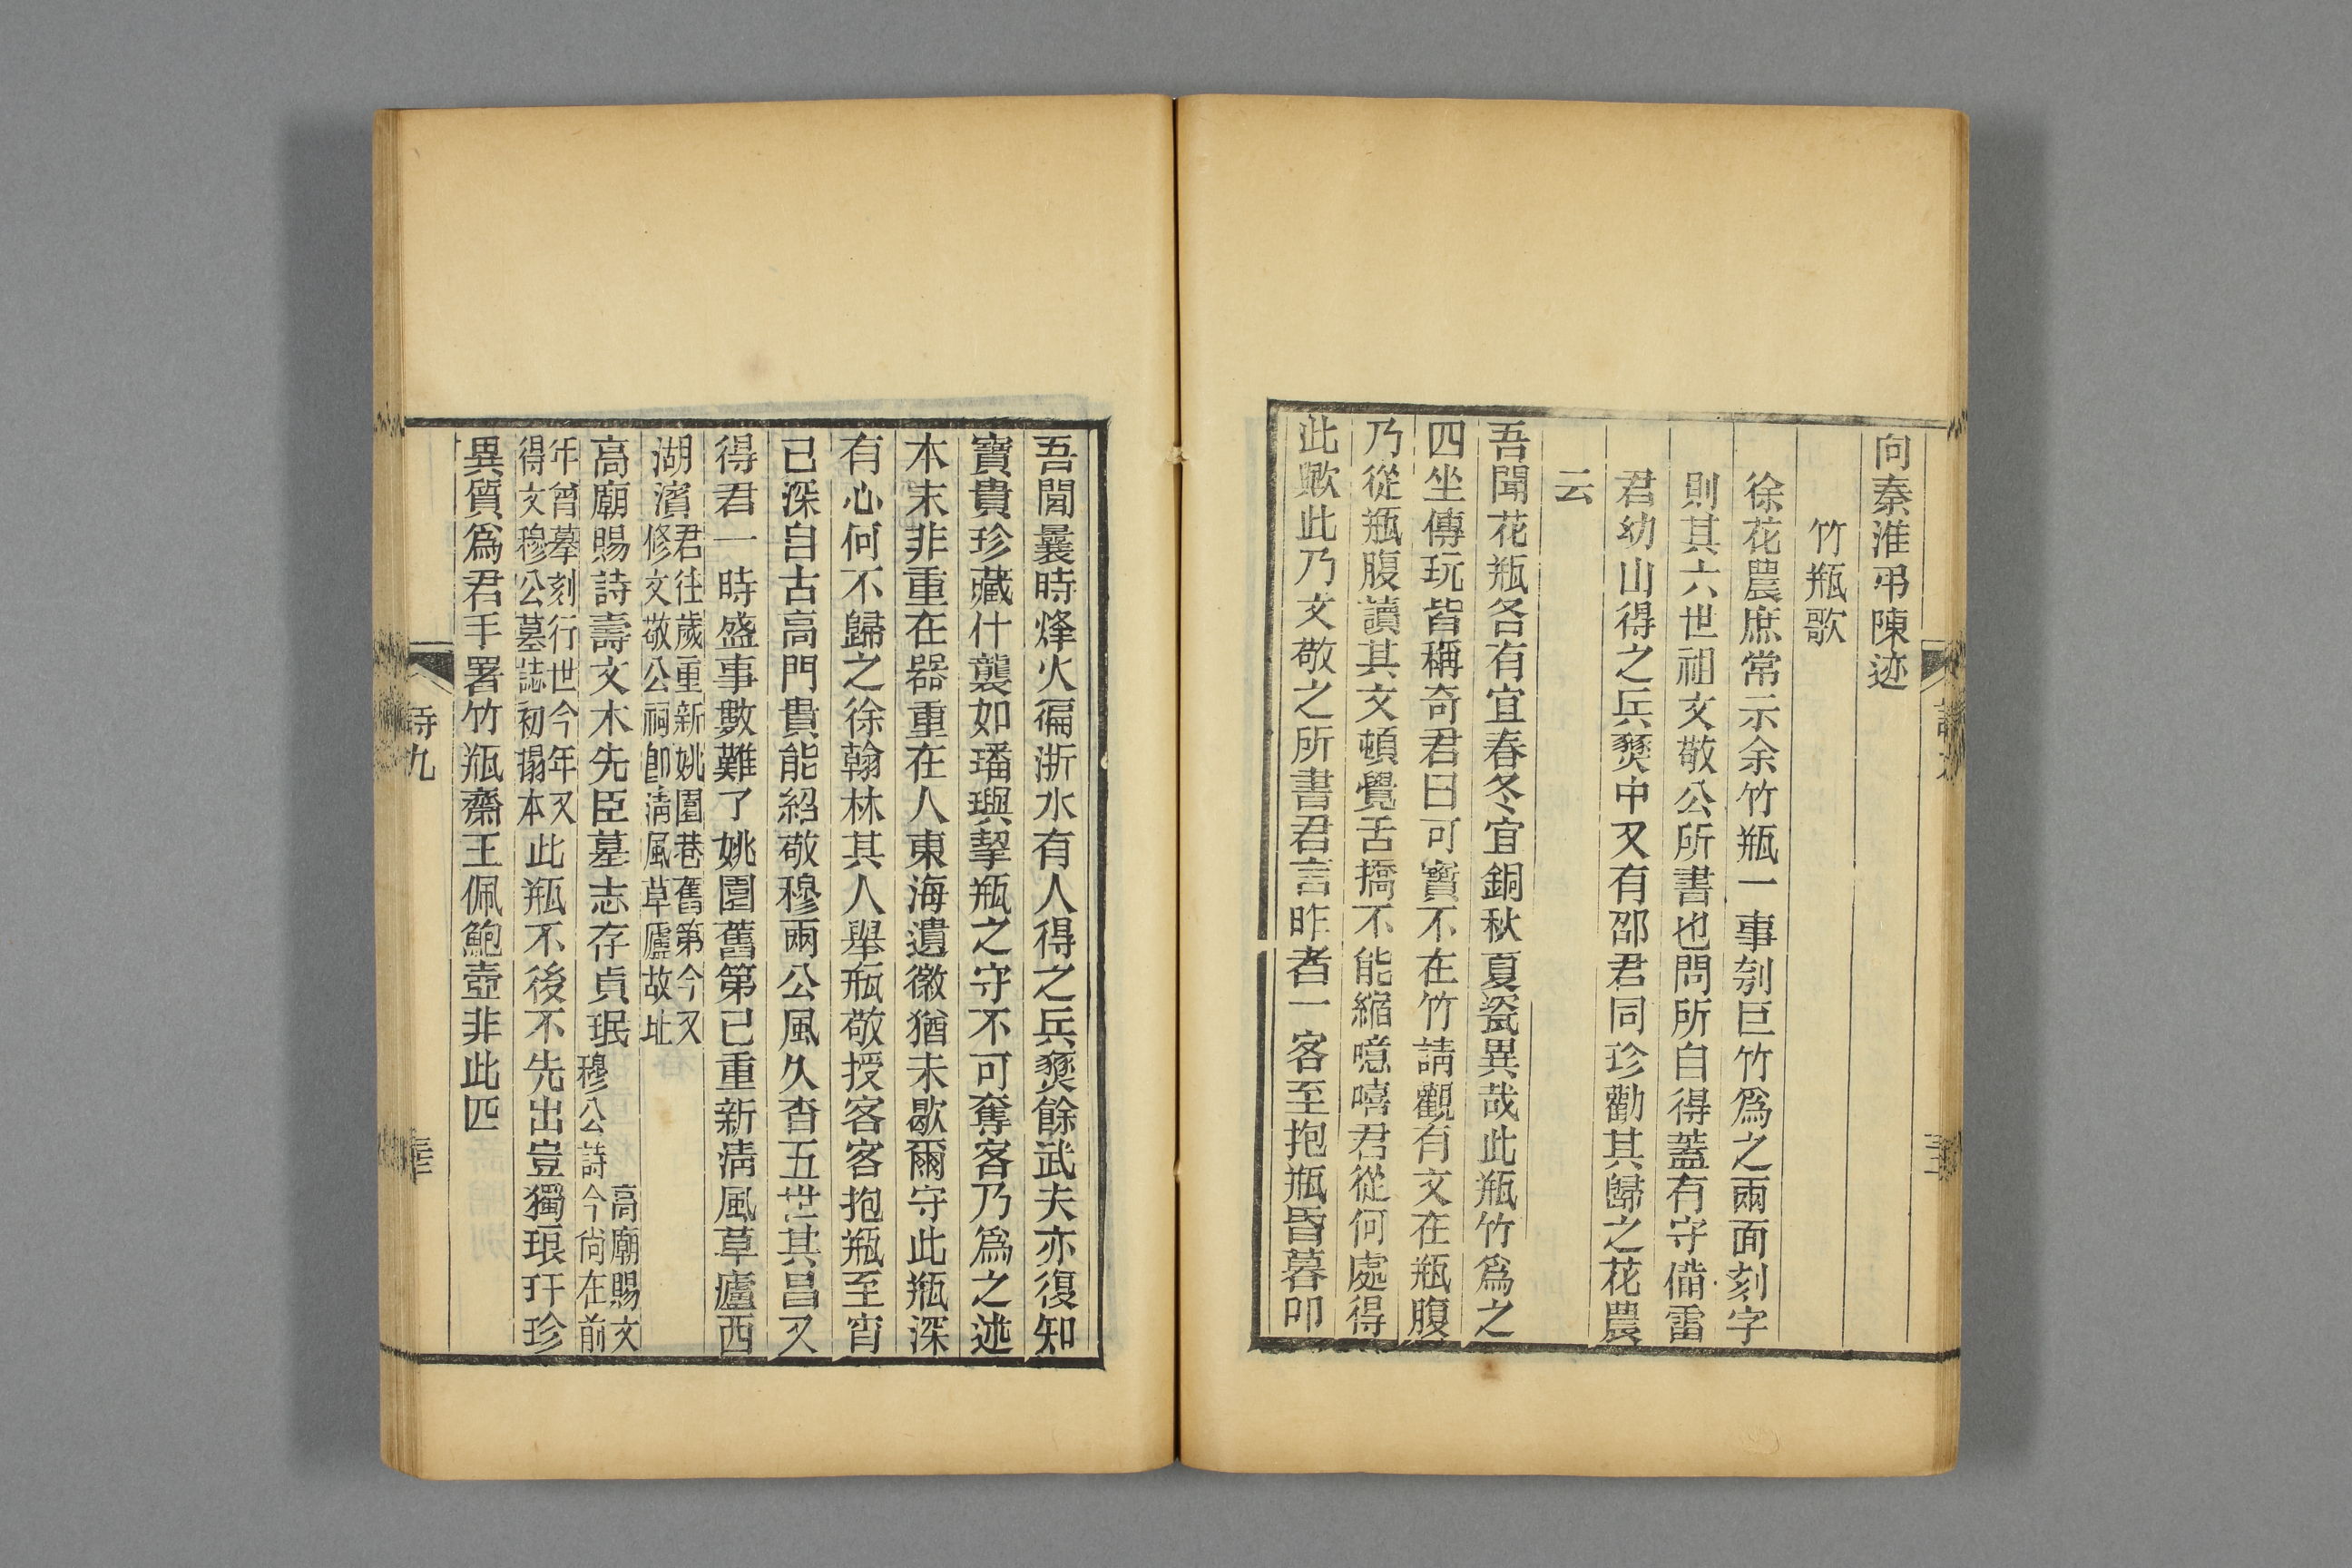 向秦淮弔陳迹
竹瓶歌
徐花農庶常示余竹瓶一事刳巨竹爲之兩面刻字
則其六世祖文敬公所書也問所自得蓋有守備雷
君幼山得之兵燹中又有邵君同珍勸其歸之花農
云
吾聞花瓶各有宜春冬宜銅秋夏瓷異哉此瓶竹爲之
四坐傳玩皆稱奇君曰可寶不在竹請觀有文在瓶腹
乃從瓶腹讀其文頓覺舌撟不能縮噫嘻君從何處得
此歟此乃文敬之所書君言昨者一客至抱瓶昏暮叩
吾閽曩時烽火徧浙水有人得之兵燹餘武夫亦復知
寶貴珍藏什襲如璠璵挈瓶之守不可奪客乃爲之述
本末非重在器重在人東海遺徽猶未歇爾守此瓶深
有心何不歸之徐翰林其人舉瓶敬授客客抱瓶至宵
已深自古高門貴能紹敬穆兩公風久杳五世其昌又
得君一時盛事數難了姚園舊第已重新淸風草廬西
湖濱君往歲重新姚園巷舊第今又
修文敬公祠卽淸風草廬故址
高廟賜詩壽文木先臣墓志存貞珉高廟賜文
穆公詩今尙在前
年曾摹刻行世今年又
得文穆公墓誌初搨本此瓶不後不先出豈獨琅玕珍
異質爲君手署竹瓶齋王佩鮑壺非此匹
詩九